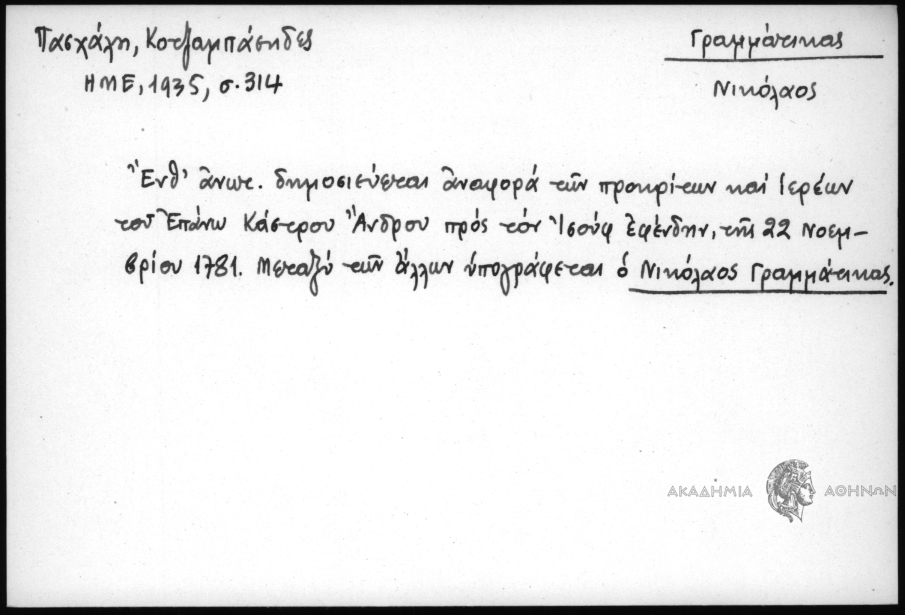 Πασχάλη, Κοτζαμπάσηδες
ΗΜΕ, 1935, σ. 314
Γραμμάτικας
Νικόλαος
Ἔνθ' ἄνωτ. δημοσιεύεται ἀναφορά τῶν προκρίτων καί ἱερέων
τοῦ Ἐπάνω Κάστρου Ἄνδρου πρός τόν Ἰσούφ ἐφένδην, τῆς 22 Νοεμ-
βρίου 1781. Μεταξύ τῶν ἄλλων ὑπογράφεται ὁ Νικόλαος Γραμμάτικας.
ΑΚΑΔΗΜΙΑ ΑΘΗΝΩΝ